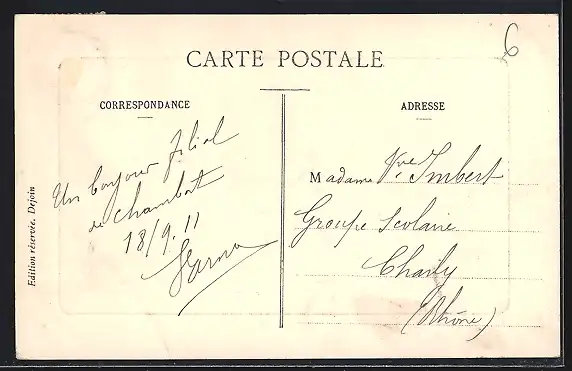 6
CARTE POSTALE
CORRESPONDANCE
Un bonjour filial
de Chambost
18/9.11
ADRESSE
Madame Vve Imbert
Groupe Scolaire
Charly
(Rhône)
Edition réservée, Dejoin